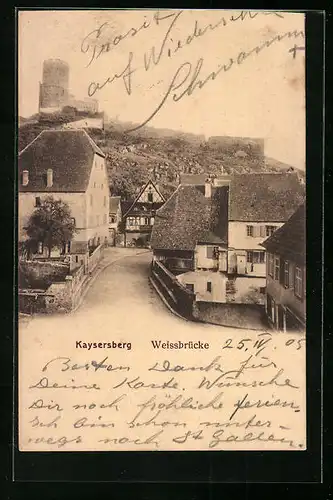 Prosit
auf Wiedersehn
Schwamm +
Kaysersberg Weissbrücke 25. IV. 05
Besten Dank für
Deine Karte. Wünsche
Dir noch fröhliche Ferien.
Ich bin schon unter-
wegs nach St Gallen.